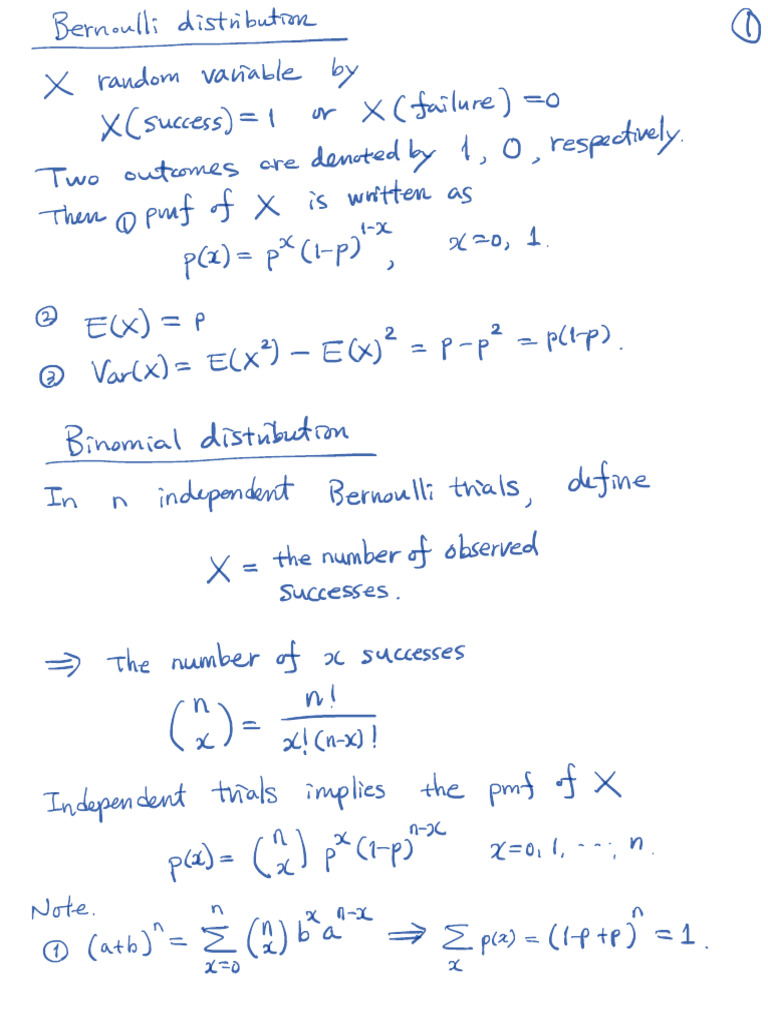 ①
Bernoulli distribution
X random variable by
X(success)=1 or X(failure)=0
Two outcomes are denoted by 1, 0, respectively.
Then ① pmf of X is written as
p(x) = p^x (1-p)^{1-x}, x=0, 1.
② E(X) = p
③ Var(X) = E(X²) - E(X)² = p-p² = p(1-p).
Binomial distribution
In n independent Bernoulli trials, define
X = the number of observed
successes.
⇒ The number of x successes
\binom{n}{x} = \frac{n!}{x!(n-x)!}
Independent trials implies the pmf of X
p(x) = \binom{n}{x} p^x (1-p)^{n-x} x=0, 1, ..., n.
Note.
① (a+b)^n = \sum_{x=0}^{n} \binom{n}{x} b^x a^{n-x} ⇒ \sum_x p(x) = (1-p+p)^n = 1.